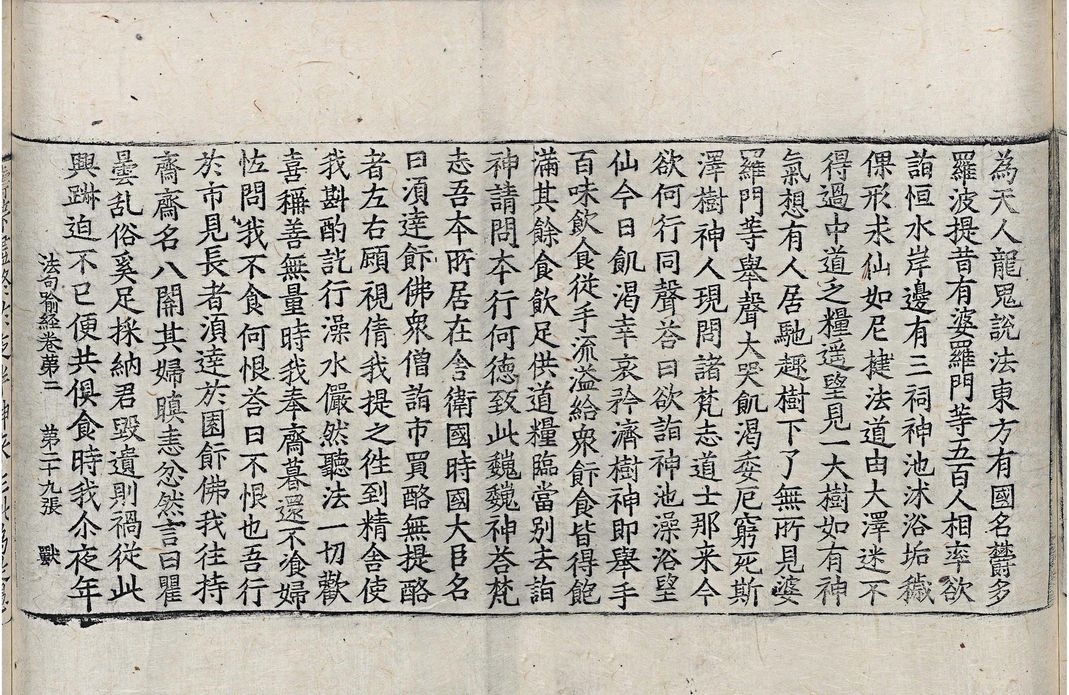 為天人龍鬼說法東方有國名欝多
羅波提昔有婆羅門等五百人相率欲
詣恒水岸邊有三祠神池沐浴垢穢
倮形求仙如尼揵法道由大澤迷不
得過中道乏糧遥望見一大樹如有神
氣想有人居馳趣樹下了無所見婆
羅門等舉聲大哭飢渴委厄窮死斯
澤樹神人現問諸梵志道士那来今
欲何行同聲荅曰欲詣神池澡浴望
仙今日飢渴幸哀矜濟樹神即舉手
百味飲食從手流溢給衆飰食皆得飽
滿其餘食飲足供道糧臨當別去詣
神請問夲行何德致此魏魏神荅梵
志吾夲所居在舍衛國時國大臣名
曰湏達飰佛衆僧詣市買酪無提酪
者左右顧視倩我提之徃到精舍使
我斟酌訖行澡水儼然聽法一切歡
喜稱善無量時我奉齋暮還不飡婦
恠問我不食何恨荅曰不恨也吾行
於市見長者湏達於園飰佛我往持
齋齋名八關其婦瞋恚忿然言曰瞿
曇乱俗奚足採納君毀遺則禍從此
興踧迫不已便共俱食時我尒夜年
法句喻經卷第二　第二十九張　獸